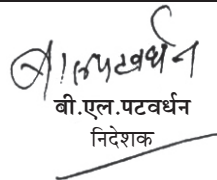 बी।एलपटवर्धन
बी.एल.पटवर्धन
निदेशक